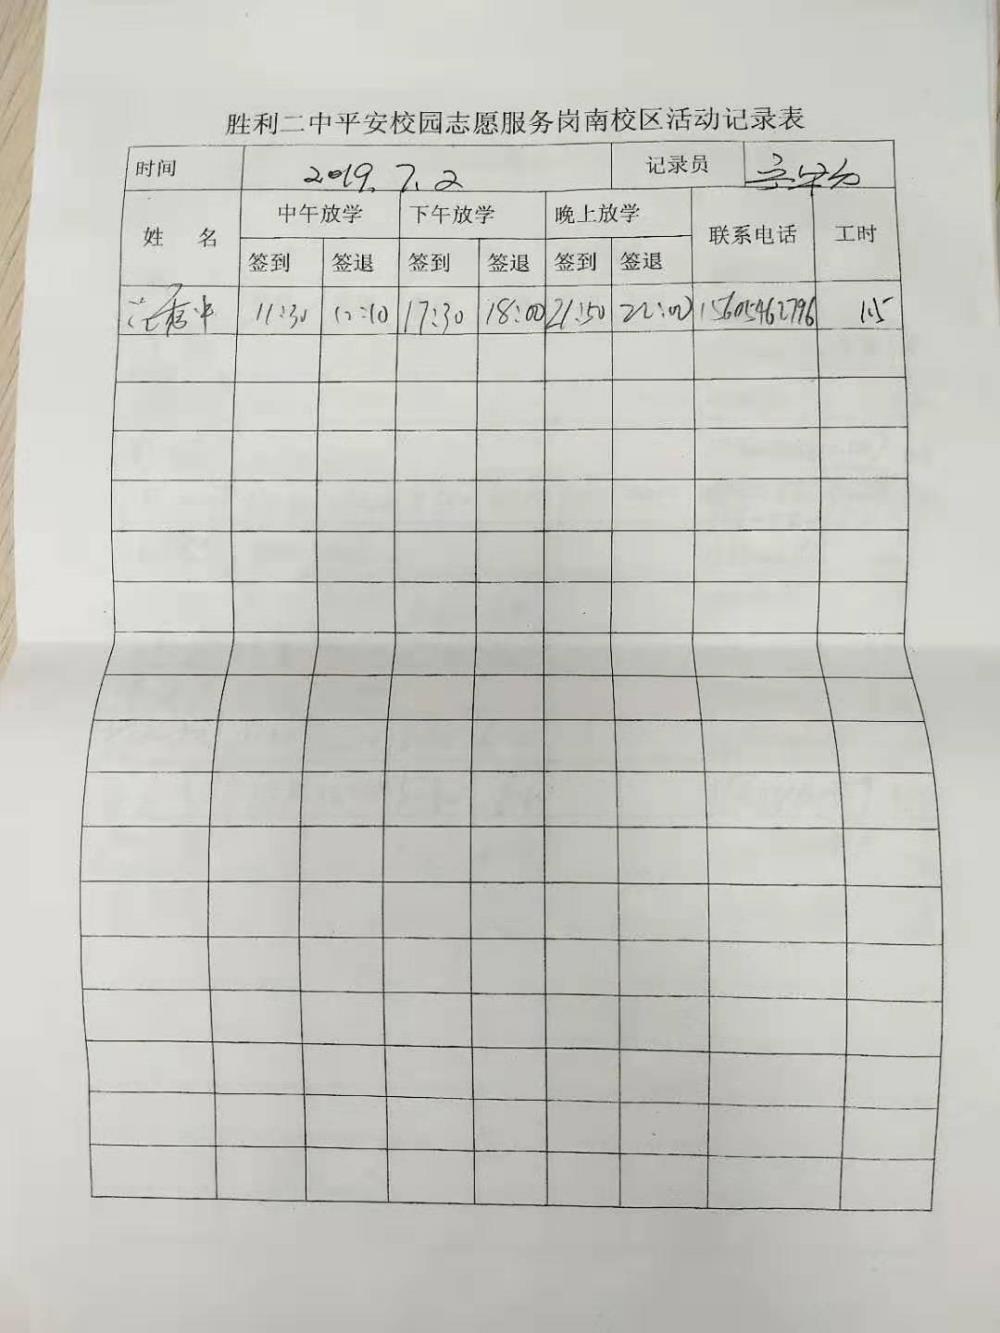 胜利二中平安校园志愿服务岗南校区活动记录表
时间 2019.7.2 记录员
姓 名 中午放学 下午放学 晚上放学 联系电话 工时
签到 签退 签到 签退 签到 签退
11:30 12:10 17:30 18:00 21:50 22:00 15605462796 1.5